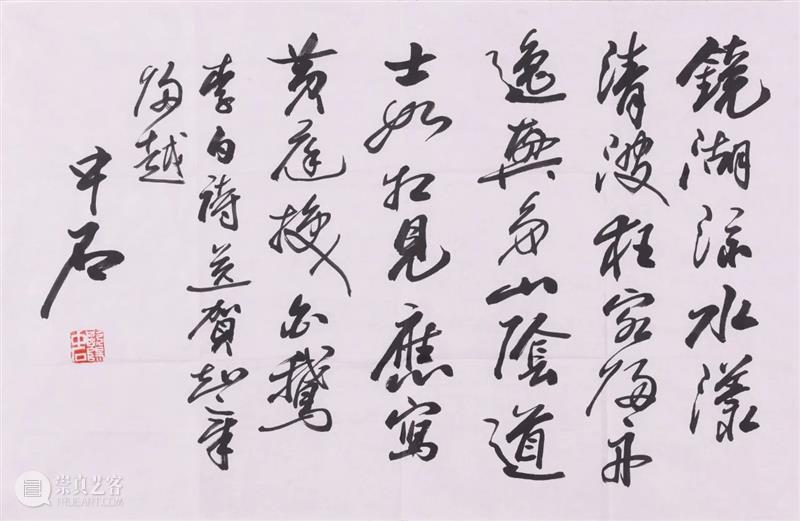 鏡湖流水漾
清波狂客歸舟
逸興多山陰道
士如相見應寫
黃庭換白鵝
李白詩送賀知章
歸越
中石
歐陽中石
崇真艺客
TRUEART.COM